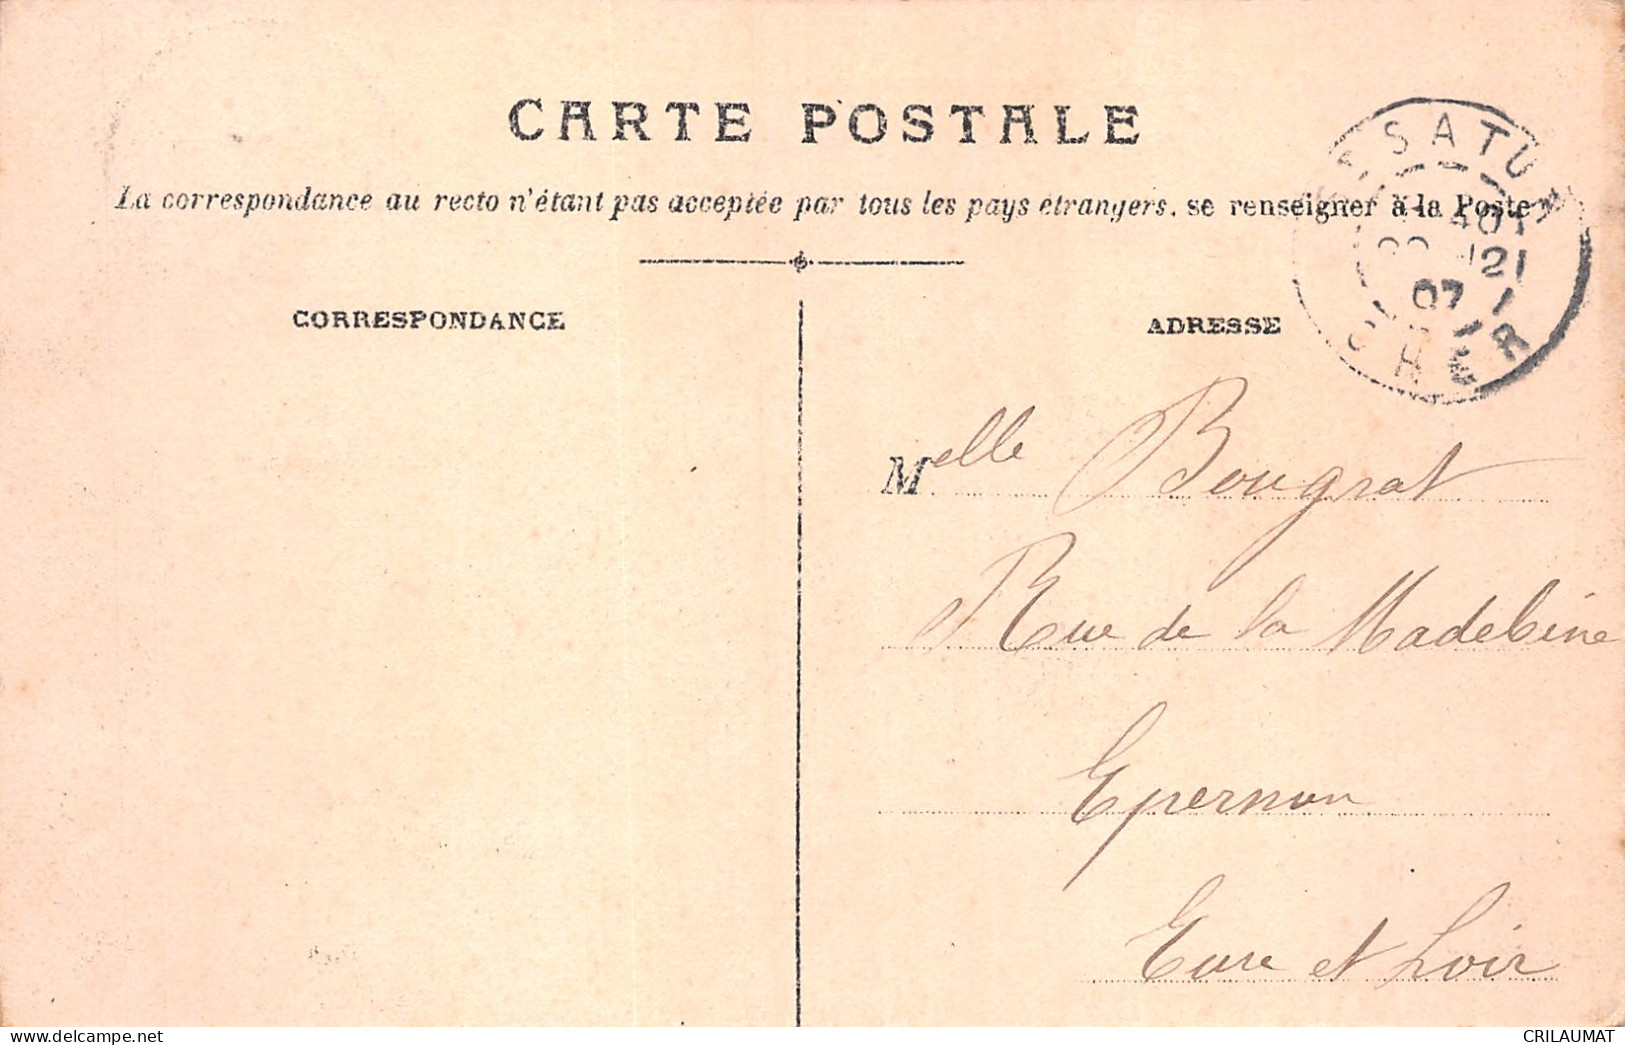 CARTE POSTALE
La correspondance au recto n'étant pas acceptée par tous les pays étrangers, se renseigner à la Poste
CORRESPONDANCE
ADRESSE
SATUR
21
07
CHER
Melle Bougrat
Rue de la Madeleine
Epernon
Eure et Loir
www.delcampe.net
CRILAUMAT